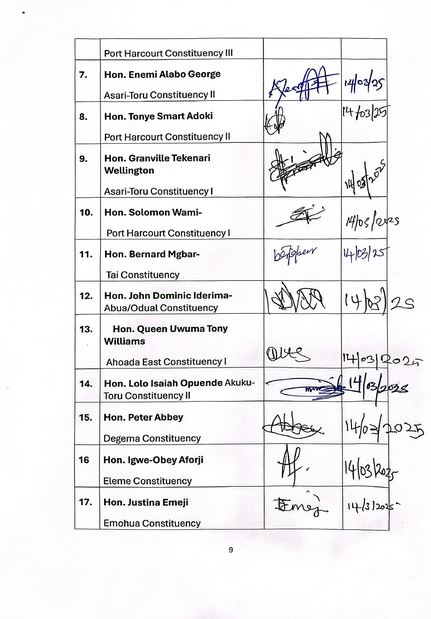 Port Harcourt Constituency III
7. Hon. Enemi Alabo George 14/03/25
Asari-Toru Constituency II
8. Hon. Tonye Smart Adoki 14/03/25
Port Harcourt Constituency II
9. Hon. Granville Tekenari
Wellington
Asari-Toru Constituency I 14/03/2025
10. Hon. Solomon Wami- 14/03/2025
Port Harcourt Constituency I
11. Hon. Bernard Mgbar- 14/03/25
Tai Constituency
12. Hon. John Dominic Iderima- 14/03/25
Abua/Odual Constituency
13. Hon. Queen Uwuma Tony
Williams
Ahoada East Constituency I 14/03/2025
14. Hon. Lolo Isaiah Opuende Akuku- 14/03/2025
Toru Constituency II
15. Hon. Peter Abbey Abbey 14/03/2025
Degema Constituency
16 Hon. Igwe-Obey Aforji Af. 14/03/2025
Eleme Constituency
17. Hon. Justina Emeji Emeji 14/3/2025
Emohua Constituency
9